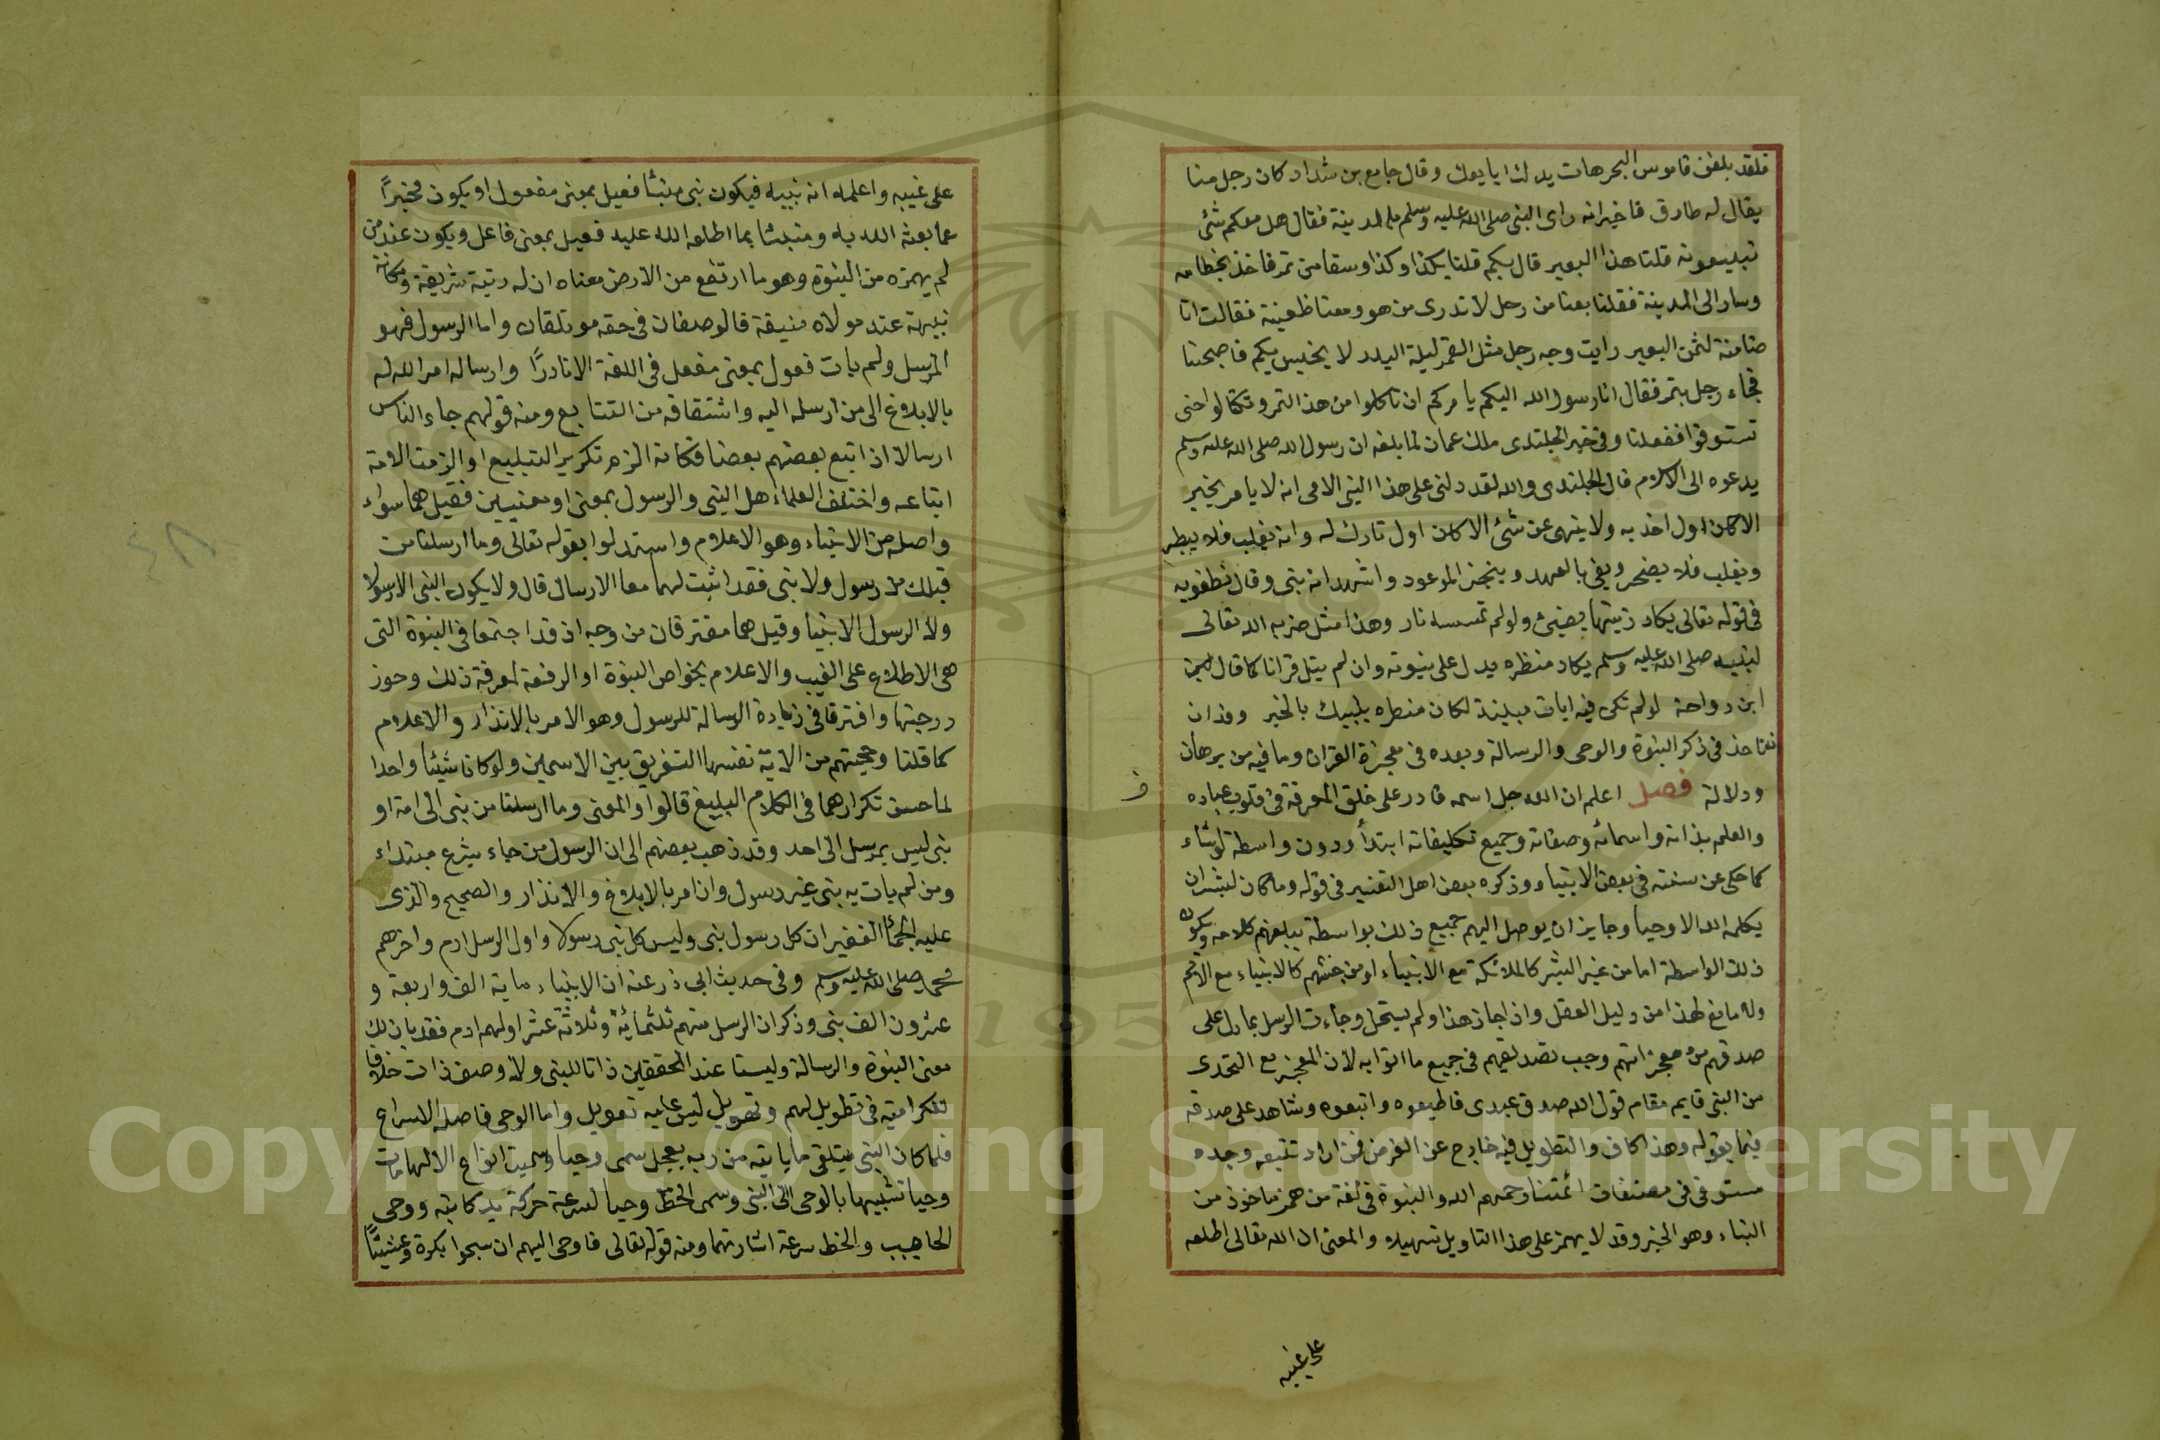 فلقد بلغن قاموس البحر هات يدك ابايعك وقال جامع بن شداد كان رجل منا
يقال له طارق فاخبر انه راى النبى صلى الله عليه وسلم بالمدينة فقال هل معكم شئ
تبيعونه قلنا هذا البعير قال بكم قلنا بكذا وكذا وسقا من تمر فاخذ بخطامه
وسار الى المدينة فقلنا بعنا من رجل لا ندرى من هو ومعنا ظعينة فقالت انا
ضامنة لثمن البعير رايت وجه رجل مثل القمر ليلة البدر لا يخيس بكم فاصبحنا
فجاء رجل بتمر فقال انا رسول رسول الله اليكم يامركم ان تاكلوا من هذا التمر وتكتالوا حتى
تستوفوا ففعلنا وفى خبر الجلندى ملك عمان لما بلغه ان رسول الله صلى الله عليه وسلم
يدعوه الى الاسلام قال الجلندى والله لقد دلنى على هذا النبى الامى انه لا يامر بخير
الا كان اول اخذ به ولا ينهى عن شئ الا كان اول تارك له وانه يغلب فلا يبطر
ويغلب فلا يضجر ويفى بالعهد وينجز الموعود واشهد انه نبى وقال نفطويه
فى قوله تعالى يكاد زيتها يضيئ ولو لم تمسسه نار وهذا مثل ضربه الله تعالى
لنبيه صلى الله عليه وسلم يكاد منظره يدل على نبوته وان لم يتل قرانا كما قال
ابن رواحة لو لم تكن فيه ايات مبينة لكان منظره ينبيك بالخير وقد ان
ناخذ فى ذكر النبوة والوحى والرسالة وبعده فى معجزة القران وما فيه من برهان
ودلالة فصل اعلم ان الله جل اسمه قادر على خلق المعرفة فى قلوب عباده
والعلم بذاته واسمائه وصفاته وجميع تكليفاته ابتدأ ودون واسطة لو شاء
كما حكى عن سنته فى بعض الانبياء وذكره بعض اهل التفسير فى قوله وما كان لبشر ان
يكلمه الله الا وحيا وجايز ان يوصل اليهم جميع ذلك بواسطة يبلغهم كلامه وتكون
ذلك الواسطة اما من غير البشر كالملائكة مع الانبياء او من جنسهم كالانبياء مع الامم
ولا مانع لهذا من دليل العقل واذا جاز هذا ولم يستحل وجاءت الرسل بما دل على
صدقهم من معجزاتهم وجب تصديقهم فى جميع ما اتوا به لان المعجز مع التحدى
من النبى قايم مقام قول الله صدق عبدى فاطيعوه واتبعوه وشاهد على صدقه
فيما يقوله وهذا كاف والتطويل فيه خارج عن الغرض فمن اراد تتبعه وجده
مستوفى فى مصنفات ائمتنا رحمهم الله والنبوة فى لغة من همز ماخوذ من
النباء وهو الخبر وقد لا يهمز على هذا التاويل تسهيلا والمعنى ان الله تعالى اطلعه
على غيبه
على غيبه واعلمه انه نبيه فيكون نبى منبئا فعيل بمعنى مفعول او يكون مخبرًا
عما بعثه الله به ومنبئا بما اطلعه الله عليه فعيل بمعنى فاعل ويكون عند من
لم يهمزه من النبوة وهو ما ارتفع من الارض معناه ان له رتبة شريفة ومكانة
نبيهة عند مولاه منيفة فالوصفان فى حقه موتلفان واما الرسول فهو
المرسل ولم يات فعول بمعنى مفعل فى اللغة الا نادرًا وارساله امر الله له
بالابلاغ الى من ارسله اليه واشتقاقه من التتابع ومنه قولهم جاء الناس
ارسالا اذا تبع بعضهم بعضا فكانه الزم تكرير التبليغ او الزمت الامة
اتباعه واختلف العلماء هل النبى والرسول بمعنى او معنيين فقيل هما سواء
واصله من الانباء وهو الاعلام واستدلوا بقوله تعالى وما ارسلنا من
قبلك من رسول ولا نبى فقد اثبت لهما معا الارسال قال ولا يكون النبى الا رسولا
ولا الرسول الا نبيا وقيل هما مفترقان من وجه اذ قد اجتمعا فى النبوة التى
هى الاطلاع على الغيب والاعلام بخواص النبوة او الرفعة لمعرفة ذلك وحوز
درجتها وافترقا فى زيادة الرسالة للرسول وهو الامر بالانذار والاعلام
كما قلنا وحجتهم من الاية نفسها التفريق بين الاسمين ولو كانا شيئا واحدا
لما حسن تكرارهما فى الكلام البليغ قالوا والمعنى وما ارسلنا من نبى الى امة او
نبى ليس بمرسل الى احد وقد ذهب بعضهم الى ان الرسول من جاء بشرع مبتداء
ومن لم يات به نبى غير رسول وان امر بالابلاغ والانذار والصحيح والذى
عليه الجماء الغفير ان كل رسول نبى وليس كل نبى رسولا واول الرسل ادم واخرهم
محمد صلى الله عليه وسلم وفى حديث ابى ذر عنه ان الانبياء ماية الف واربعة و
عشرون الف نبى وذكر ان الرسل منهم ثلثمائة وثلاثة عشر اولهم ادم فقد بان لك
معنى النبوة والرسالة وليستا عند المحققين ذاتا للنبى ولا وصف ذات خلافا
للكرامية فى تطويل لهم وتهويل ليس عليه تعويل واما الوحى فاصله الاسراع
فلما كان النبى يتلقى ما ياتيه من ربه بعجل سمى وحيا وسميت انواع الالهامات
وحيا تشبيها بالوحى الى النبى وسمى الخط وحيا لسرعة حركة يد كاتبه ووحى
الحاجب والخط سرعة اشارتهما ومنه قوله تعالى فاوحى اليهم ان سبحوا بكرة وعشيًّا
Copyright © King Saud University
1957